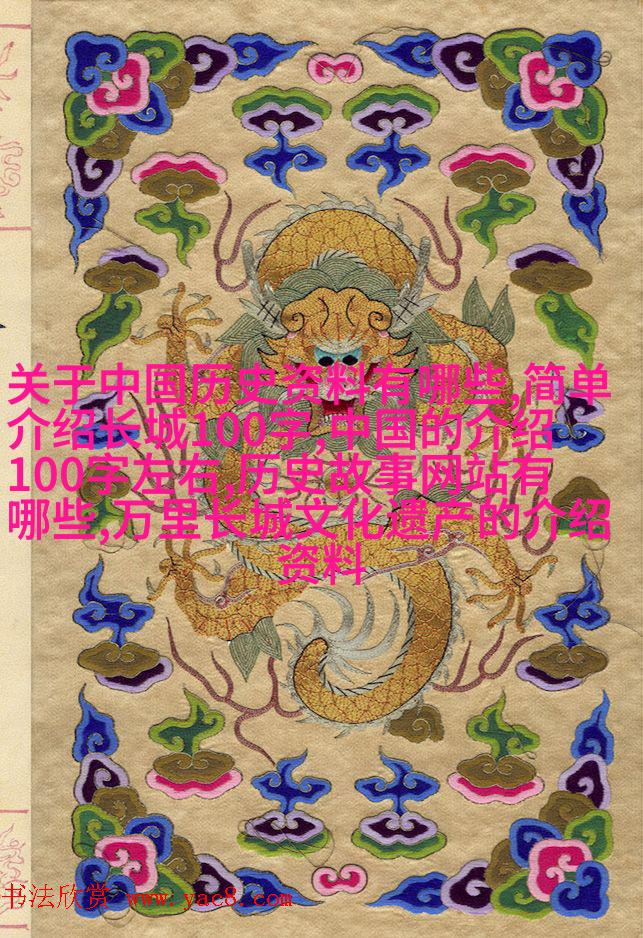 关于中国历史资料有哪些,简单
介绍长城100字,中国的介绍
100字左右,历史故事网站有
哪些,万里长城文化遗产的介绍
资料
书法欣赏 www.yac8.com